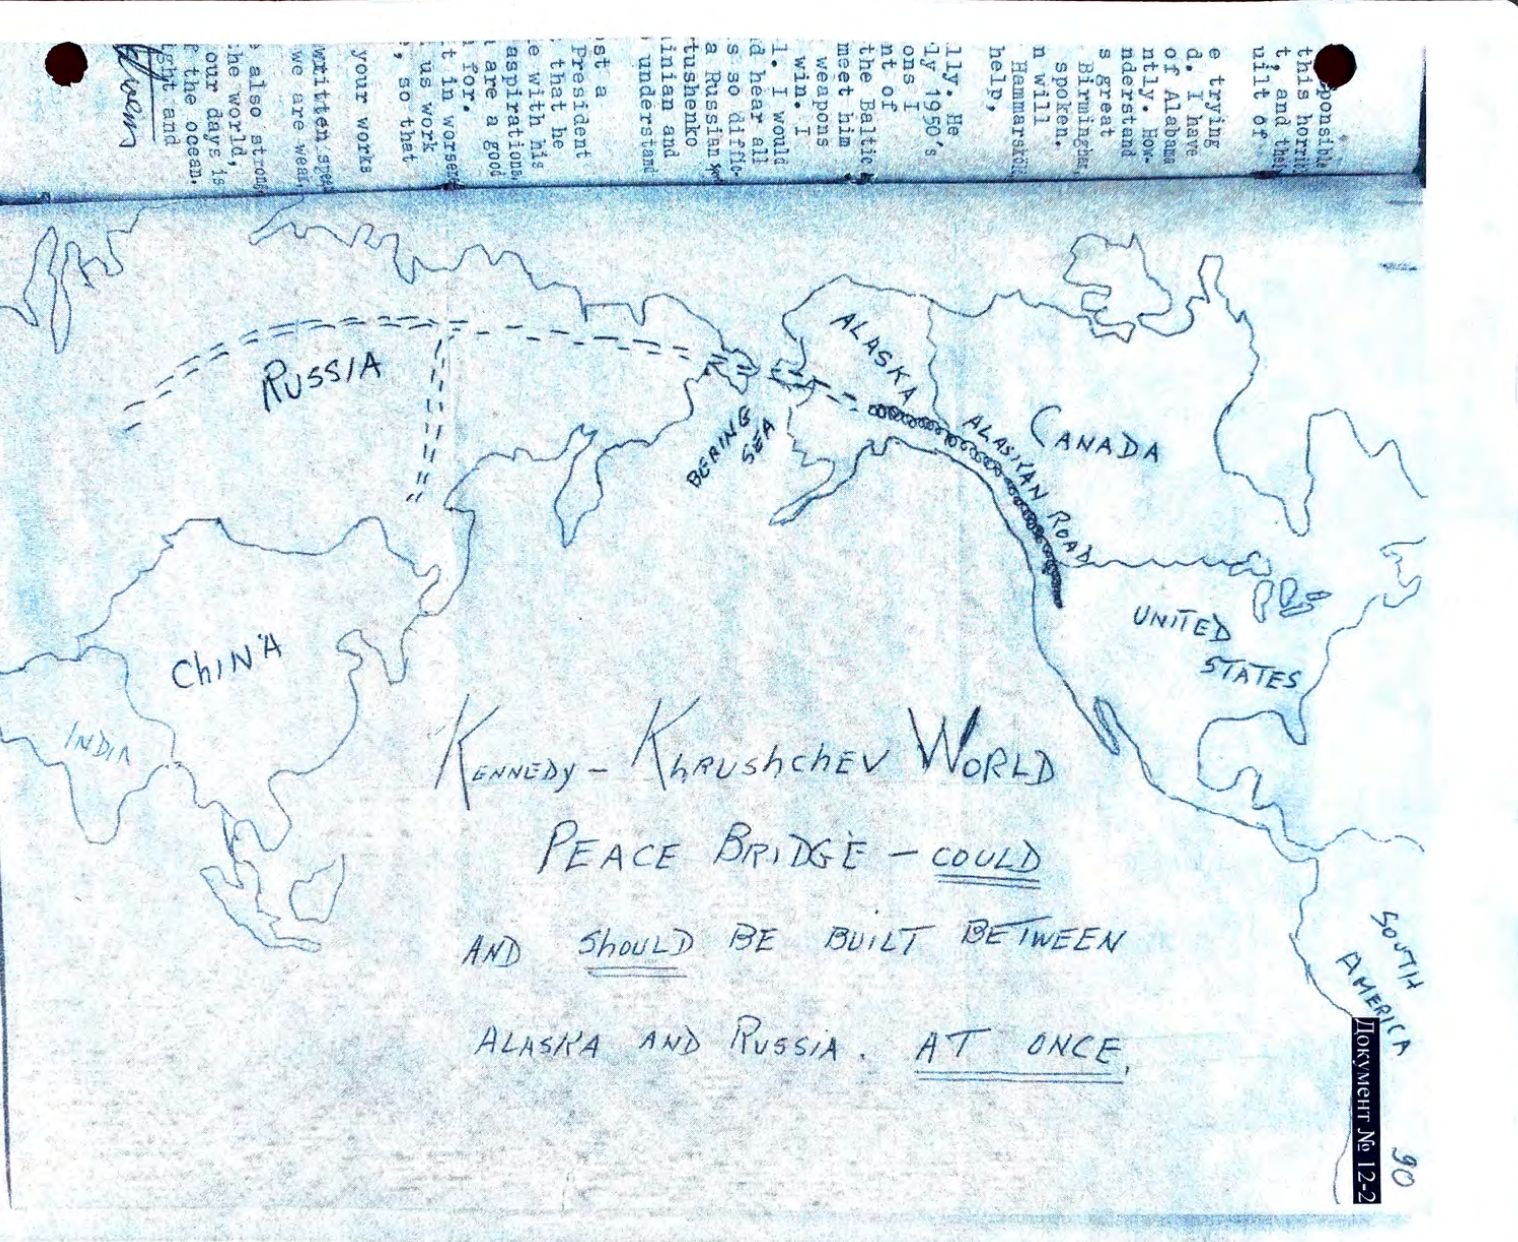 ponsible
this horrib
t, and thei
uilt of
e trying
d. I have
of Alabama
ntly. How-
nderstand
s great
Birmingham,
spoken.
n will
Hammarskjöl
help,
lly. He
ly 1950's
ons I
nt of
the Baltic
meet him
weapons
win. I
l. I would
d hear all
s so diffic-
a Russian
tushenko
inian and
understand
ost a
President
that he
e with his
aspirations,
are a good
for.
t in worsen
us work
, so that
your works
written spee
we are wear
also strong
he world,
our days is
the ocean.
ght and
RUSSIA
ALASKA
BERING
SEA
ALASKAN ROAD
CANADA
UNITED
STATES
CHINA
INDIA
KENNEDY - KHRUSHCHEV WORLD
PEACE BRIDGE - COULD
AND SHOULD BE BUILT BETWEEN
ALASKA AND RUSSIA. AT ONCE.
SOUTH
AMERICA
Документ № 12-2
90